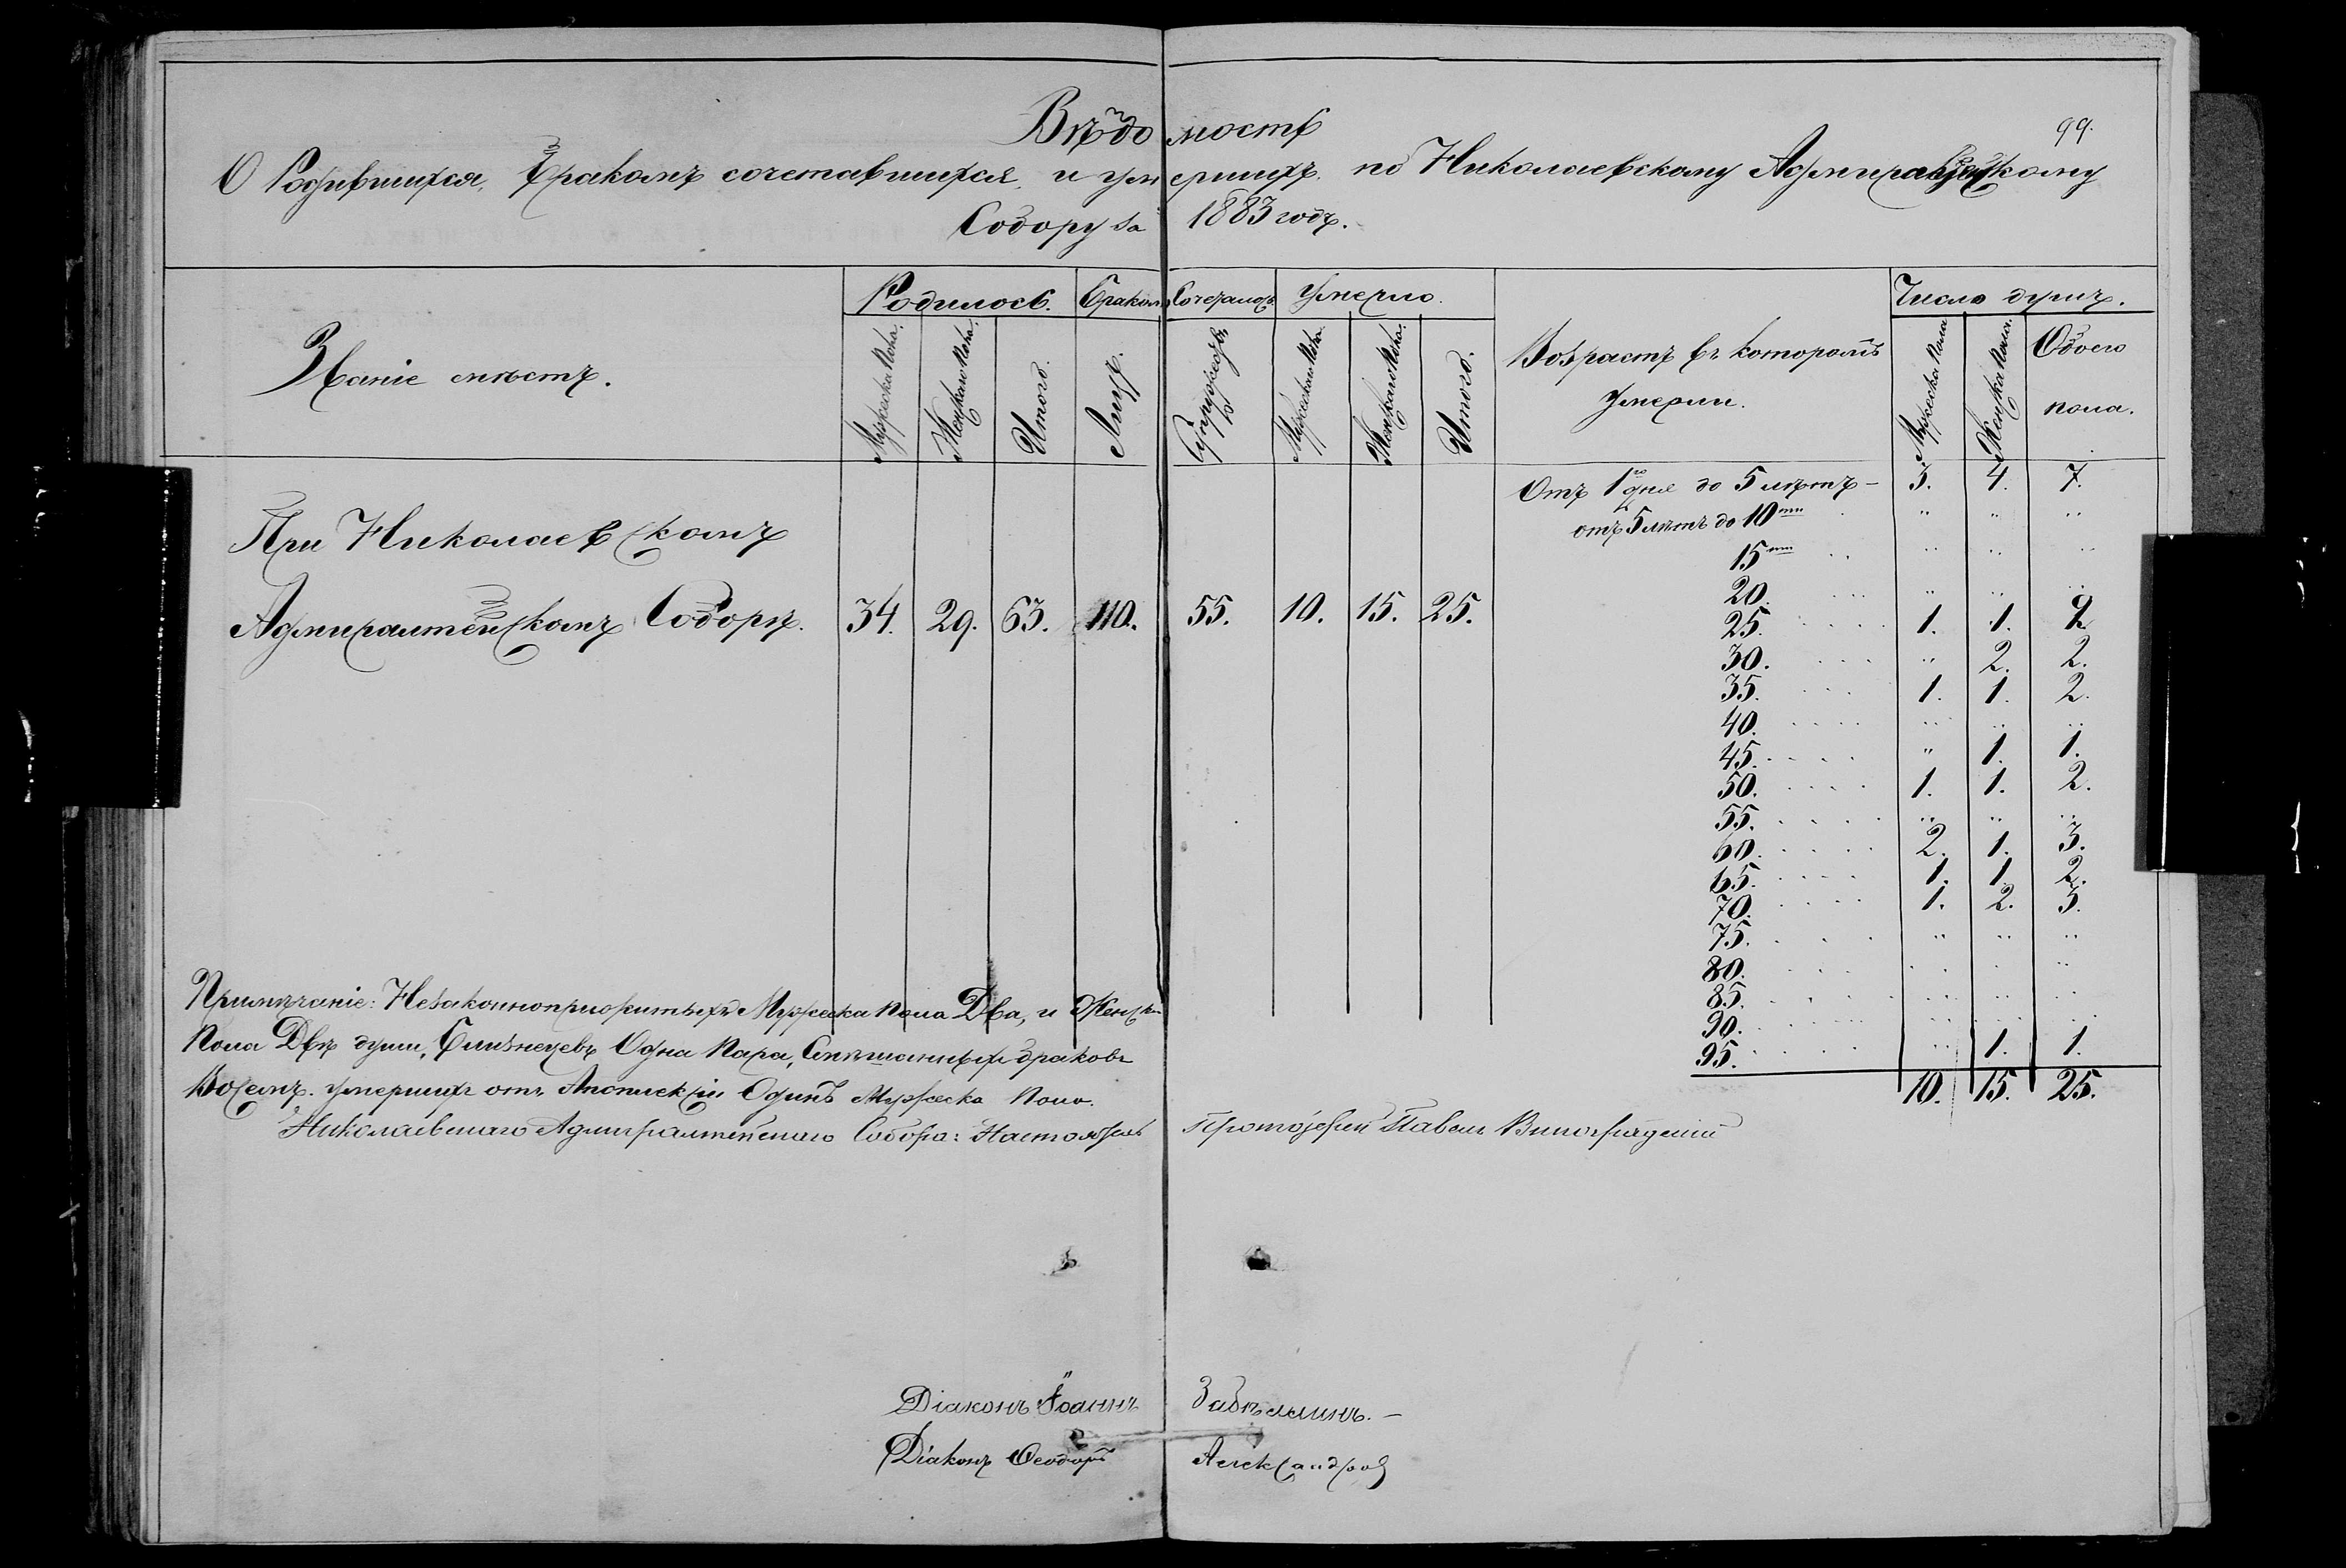 Вѣдомость
99.
О Родившихся, бракомъ сочетавшихся и умершихъ по Николаевскому Адмиралтейскому
Собору за 1883 годъ.
Званіе мѣстъ.
Родилось.
Мужеска Пола.
Женскаго Пола.
Итого.
Бракомъ Сочеталось
Лицъ.
Супружествъ
Умерло.
Мужескаго Пола.
Женскаго Пола.
Итого.
Возрастъ въ которомъ
умерли.
Число душъ.
Мужеска Пола
Женска Пола.
Обоего
пола.
При Николаевскомъ
Адмиралтейскомъ Соборѣ. 34. 29. 63. 110. 55. 10. 15. 25.
Отъ 1го дня до 5 лѣтъ - 3. 4. 7.
отъ 5 лѣтъ до 10ти " " "
15ти " " "
20. " " "
25. 1. 1. 2.
30. " 2. 2.
35. 1. 1. 2.
40. " " "
45. " 1. 1.
50. 1. 1. 2.
55. " " "
60. 2. 1. 3.
65. 1. 1. 2.
70. 1. 2. 3.
75. " " "
80. " " "
85. " " "
90. " " "
95. " 1. 1.
10. 15. 25.
Примѣчаніе: Незаконноприжитыхъ Мужеска пола Два, и Женска
Пола Двѣ души, Близнецевъ Одна Пара, Смѣшанныхъ браковъ
Восемь. Умершихъ отъ Апоплексіи Одинъ Мужеска Пола.
Николаевскаго Адмиралтейскаго Собора: Настоятель Протоіерей Павелъ Виноградскій
Діаконъ Іоаннъ Забѣлинъ. -
Діаконъ Ѳеодоръ Александров